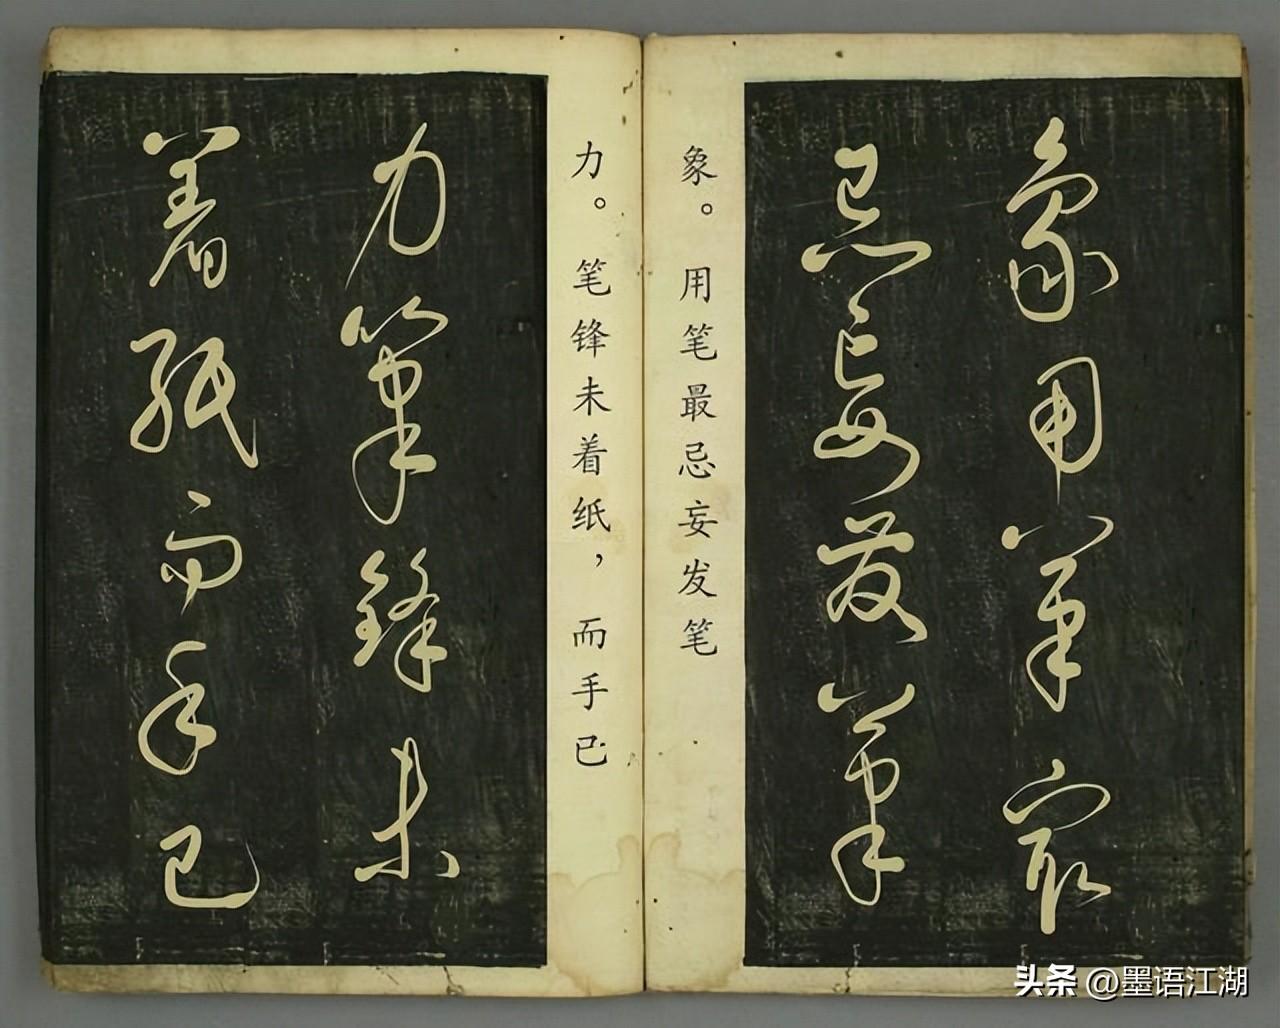 象用筆最
忌妄發筆
象。用笔最忌妄发笔
力。笔锋未着纸，而手已
力筆鋒未
着紙而手已
头条 @墨语江湖